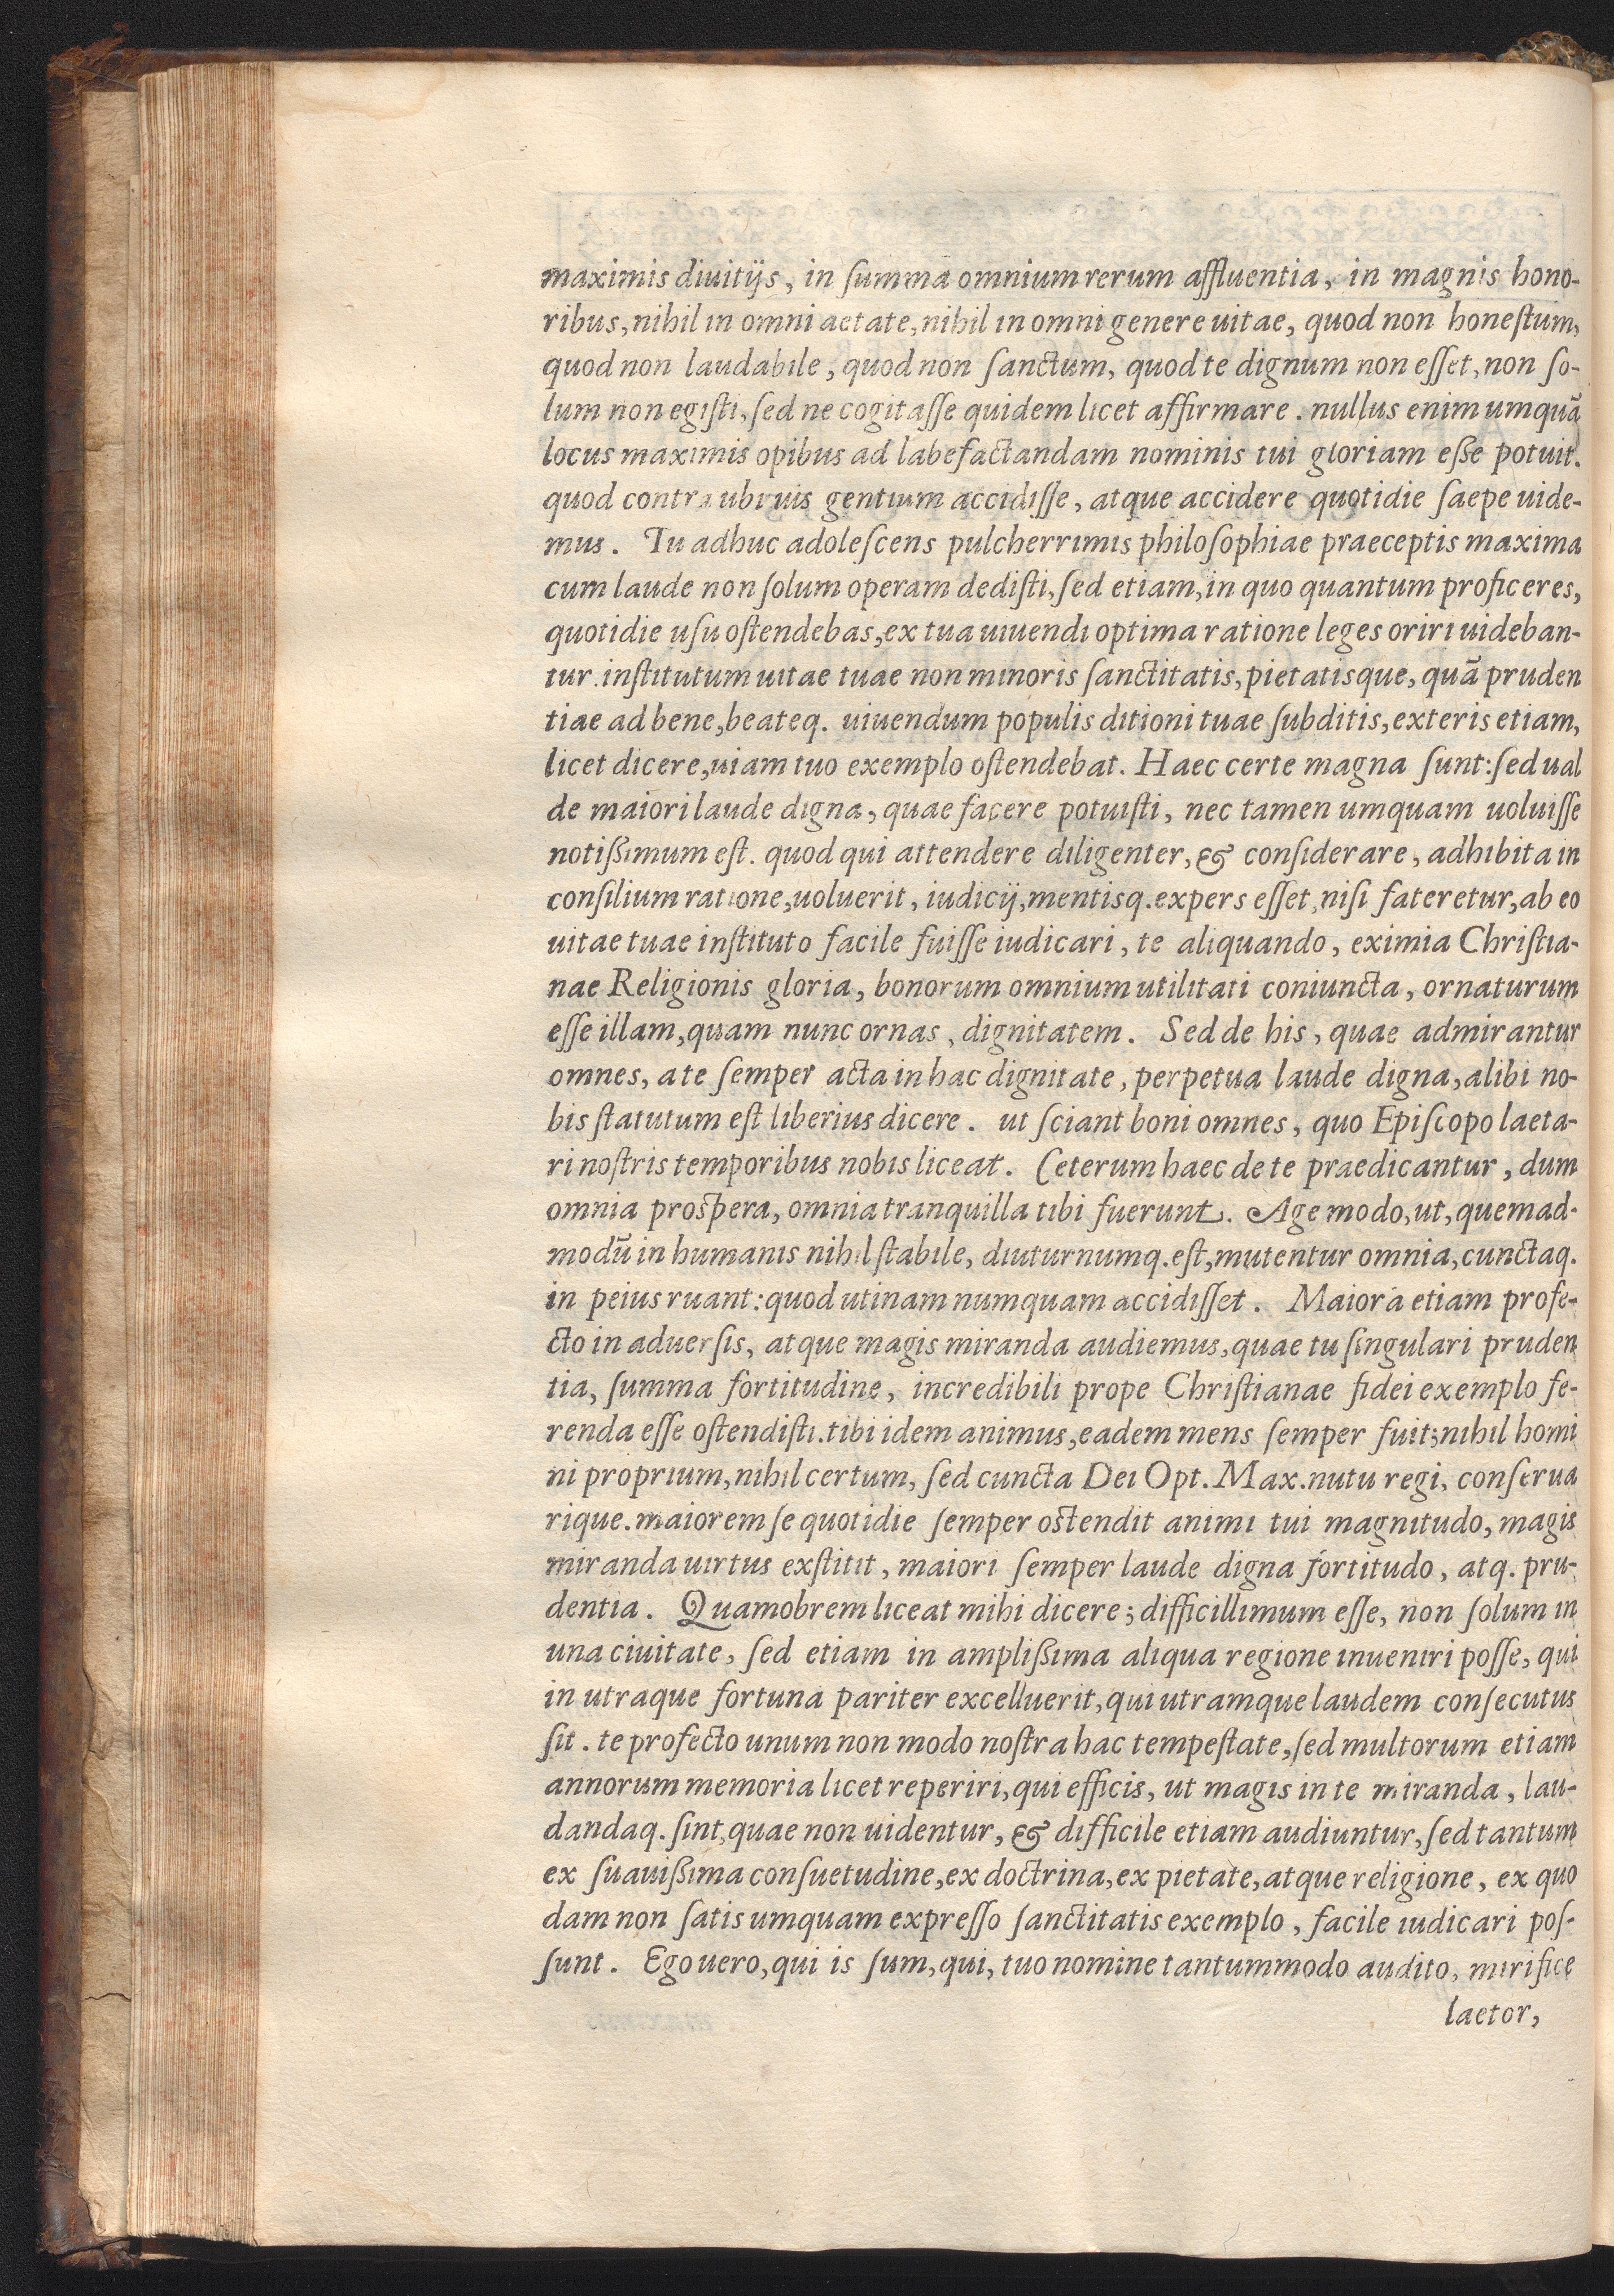 maximis diuitijs, in summa omnium rerum affluentia, in magnis hono-
ribus, nihil in omni aetate, nihil in omni genere uitae, quod non honestum,
quod non laudabile, quod non sanctum, quod te dignum non esset, non so-
lum non egisti, sed ne cogitasse quidem licet affirmare. nullus enim umquā
locus maximis opibus ad labefactandam nominis tui gloriam esse potuit.
quod contra ubiuis gentium accidisse, atque accidere quotidie saepe uide-
mus. Tu adhuc adolescens pulcherrimis philosophiae praeceptis maxima
cum laude non solum operam dedisti, sed etiam, in quo quantum proficeres,
quotidie usu ostendebas, ex tua uiuendi optima ratione leges oriri uideban-
tur. institutum uitae tuae non minoris sanctitatis, pietatisque, quā pruden
tiae ad bene, beateq. uiuendum populis ditioni tuae subditis, exteris etiam,
licet dicere, uiam tuo exemplo ostendebat. Haec certe magna sunt: sed ual
de maiori laude digna, quae facere potuisti, nec tamen umquam uoluisse
notißimum est. quod qui attendere diligenter, & considerare, adhibita in
consilium ratione, uoluerit, iudicij, mentisq. expers esset, nisi fateretur, ab eo
uitae tuae instituto facile fuisse iudicari, te aliquando, eximia Christia-
nae Religionis gloria, bonorum omnium utilitati coniuncta, ornaturum
esse illam, quam nunc ornas, dignitatem. Sed de his, quae admirantur
omnes, a te semper acta in hac dignitate, perpetua laude digna, alibi no-
bis statutum est liberius dicere. ut sciant boni omnes, quo Episcopo laeta-
ri nostris temporibus nobis liceat. Ceterum haec de te praedicantur, dum
omnia prospera, omnia tranquilla tibi fuerunt. Age modo, ut, quemad-
modū in humanis nihil stabile, diuturnumq. est, mutentur omnia, cunctaq.
in peius ruant: quod utinam numquam accidisset. Maiora etiam profe-
cto in aduersis, atque magis miranda audiemus, quae tu singulari pruden
tia, summa fortitudine, incredibili prope Christianae fidei exemplo fe-
renda esse ostendisti. tibi idem animus, eadem mens semper fuit; nihil homi
ni proprium, nihil certum, sed cuncta Dei Opt. Max. nutu regi, conserua
rique. maiorem se quotidie semper ostendit animi tui magnitudo, magis
miranda uirtus exstitit, maiori semper laude digna fortitudo, atq. pru-
dentia. Quamobrem liceat mihi dicere; difficillimum esse, non solum in
una ciuitate, sed etiam in amplißima aliqua regione inueniri posse, qui
in utraque fortuna pariter excelluerit, qui utramque laudem consecutus
sit. te profecto unum non modo nostra hac tempestate, sed multorum etiam
annorum memoria licet reperiri, qui efficis, ut magis in te miranda, lau-
dandaq. sint, quae non uidentur, & difficile etiam audiuntur, sed tantum
ex suauißima consuetudine, ex doctrina, ex pietate, atque religione, ex quo
dam non satis umquam expresso sanctitatis exemplo, facile iudicari pos-
sunt. Ego uero, qui is sum, qui, tuo nomine tantummodo audito, mirifice
laetor,